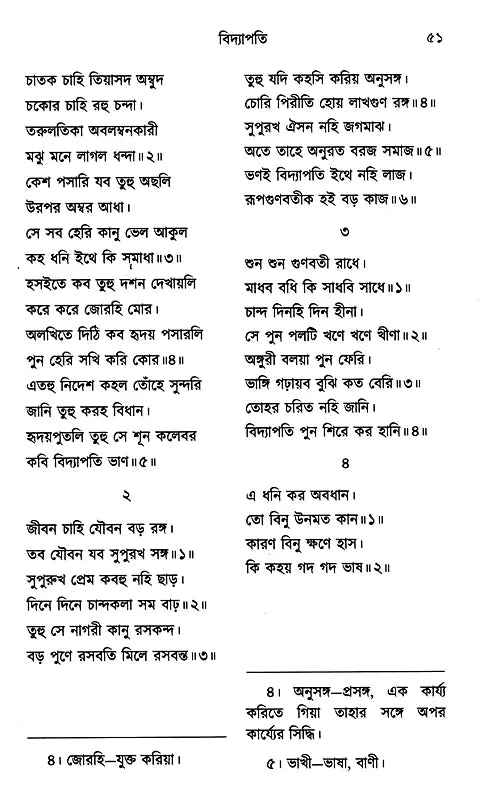 বিদ্যাপতি
৫১
চাতক চাহি তিয়াসদ অম্বুদ
চকোর চাহি রহু চন্দা।
তরুলতিকা অবলম্বনকারী
মঝু মনে লাগল ধন্দা॥২॥
কেশ পসারি যব তুহু অছলি
উরপর অম্বর আধা।
সে সব হেরি কানু ভেল আকুল
কহ ধনি ইথে কি সমাধা॥৩॥
হসইতে কব তুহু দশন দেখায়লি
করে করে জোরহি মোর।
অলখিতে দিঠি কব হৃদয় পসারলি
পুন হেরি সখি করি কোর॥৪॥
এতহু নিদেশ কহল তোঁহে সুন্দরি
জানি তুহু করহ বিধান।
হৃদয়পুতলি তুহু সে শূন কলেবর
কবি বিদ্যাপতি ভাণ॥৫॥
২
জীবন চাহি যৌবন বড় রঙ্গ।
তব যৌবন যব সুপুরখ সঙ্গ॥১॥
সুপুরুখ প্রেম কবহু নহি ছাড়।
দিনে দিনে চান্দকলা সম বাঢ়॥২॥
তুহু সে নাগরী কানু রসকন্দ।
বড় পুণে রসবতি মিলে রসবন্ত॥৩॥
৪। জোরহি—যুক্ত করিয়া।
তুহু যদি কহসি করিয় অনুসঙ্গ।
চোরি পিরীতি হোয় লাখগুণ রঙ্গ॥৪॥
সুপুরখ ঐসন নহি জগমাঝ।
অতে তাহে অনুরত বরজ সমাজ॥৫॥
ভণই বিদ্যাপতি ইথে নহি লাজ।
রূপগুণবতীক হই বড় কাজ॥৬॥
৩
শুন শুন গুণবতী রাধে।
মাধব বধি কি সাধবি সাধে॥১॥
চান্দ দিনহি দিন হীনা।
সে পুন পলটি খণে খণে খীণা॥২॥
অঙ্গুরী বলয়া পুন ফেরি।
ভাঙ্গি গঢ়ায়ব বুঝি কত বেরি॥৩॥
তোহর চরিত নহি জানি।
বিদ্যাপতি পুন শিরে কর হানি॥৪॥
৪
এ ধনি কর অবধান।
তো বিনু উনমত কান॥১॥
কারণ বিনু ক্ষণে হাস।
কি কহয় গদ গদ ভাষ॥২॥
৪। অনুসঙ্গ—প্রসঙ্গ, এক কার্য্য
করিতে গিয়া তাহার সঙ্গে অপর
কার্য্যের সিদ্ধি।
৫। ভাখী—ভাষা, বাণী।